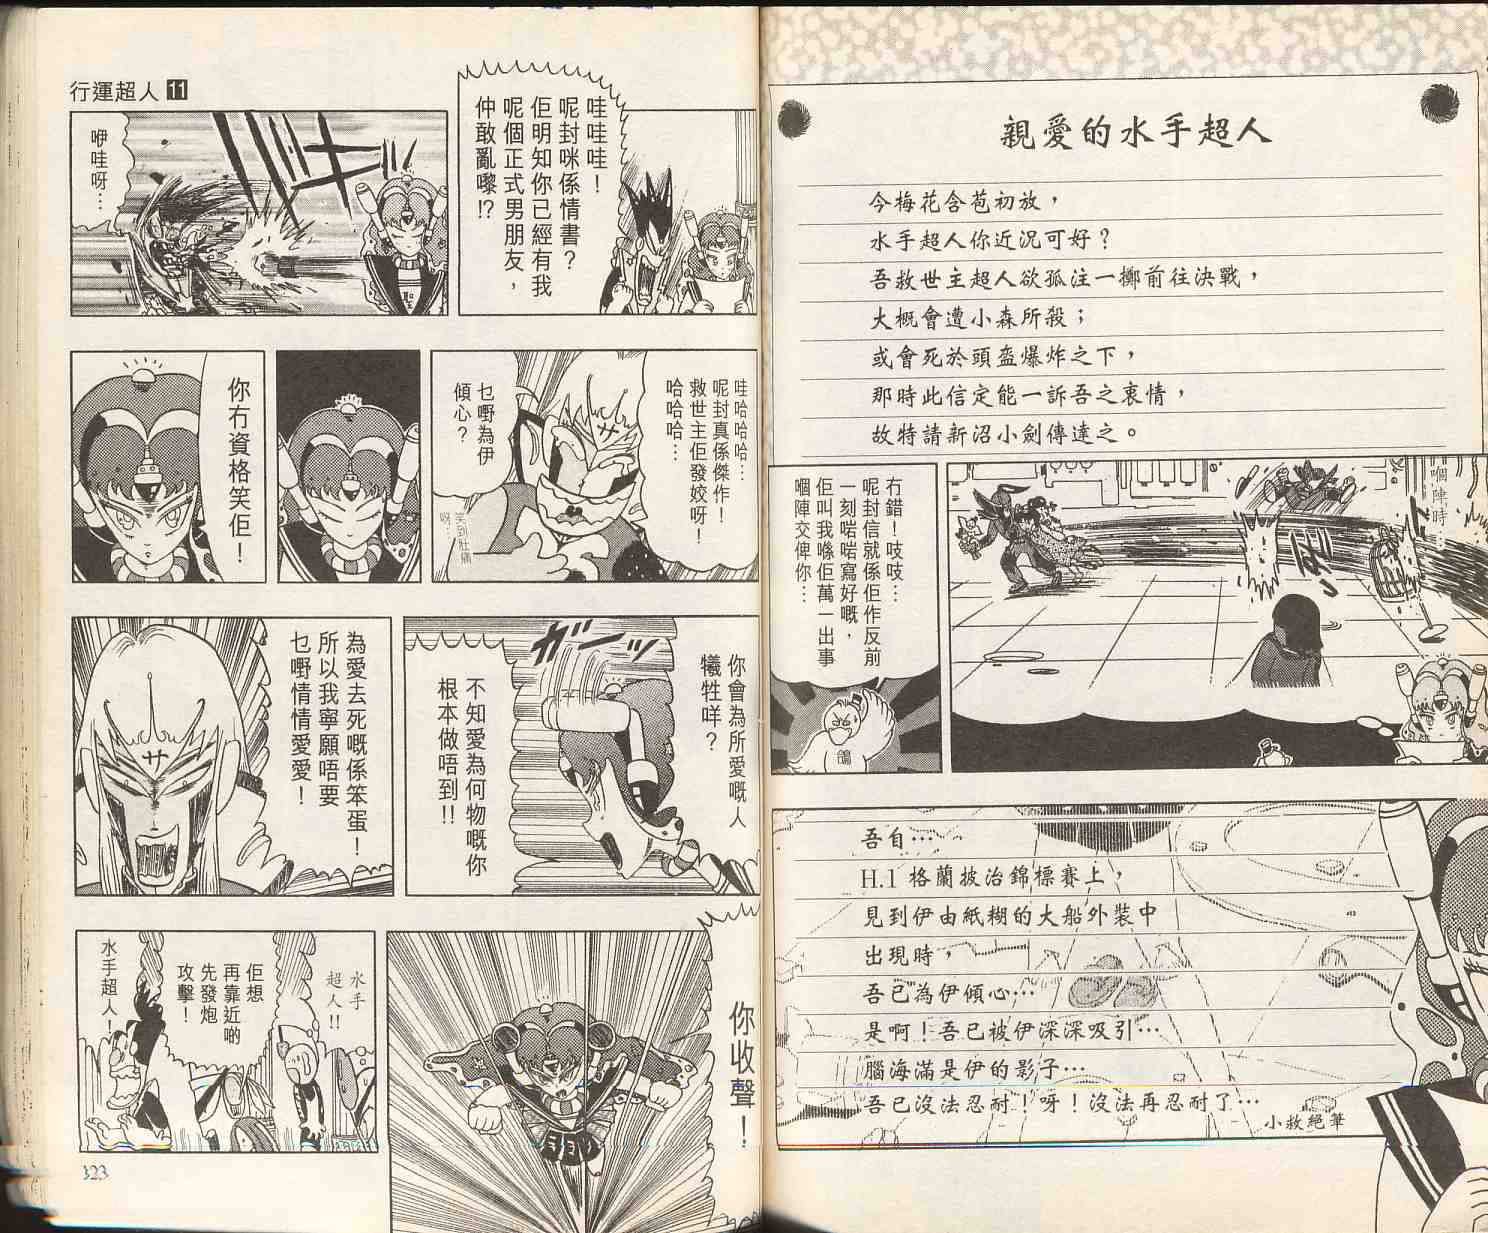 親愛的水手超人
今梅花含苞初放，
水手超人你近況可好？
吾救世主超人欲孤注一擲前往決戰，
大概會遭小森所殺；
或會死於頭盔爆炸之下，
那時此信定能一訴吾之衷情，
故特請新沼小劍傳達之。
嗰陣時…
冇錯！吱吱…
呢封信就係佢作反前
一刻啱啱寫好嘅，
佢叫我喺佢萬一出事
嗰陣交俾你…
鴿
吾自…
H.1 格蘭披治錦標賽上，
見到伊由紙糊的大船外裝中
出現時，
吾已為伊傾心…
是啊！吾已被伊深深吸引…
腦海滿是伊的影子…
吾已沒法忍耐！呀！沒法再忍耐了…
小救絕筆
行運超人 11
哇哇哇！
呢封咪係情書？
佢明知你已經有我
呢個正式男朋友，
仲敢亂嚟!?
咿哇呀…
哇哈哈哈…
呢封真係傑作！
救世主佢發姣呀！
哈哈哈…
乜嘢為伊
傾心？
笑到肚痛
呀…
サ
你冇資格笑佢！
你會為所愛嘅人
犧牲咩？
不知愛為何物嘅你
根本做唔到!!
為愛去死嘅係笨蛋！
所以我寧願唔要
乜嘢情情愛愛！
サ
你收聲！
水手
超人!!
佢想
再靠近啲
先發炮
攻擊！
水手超人！
323